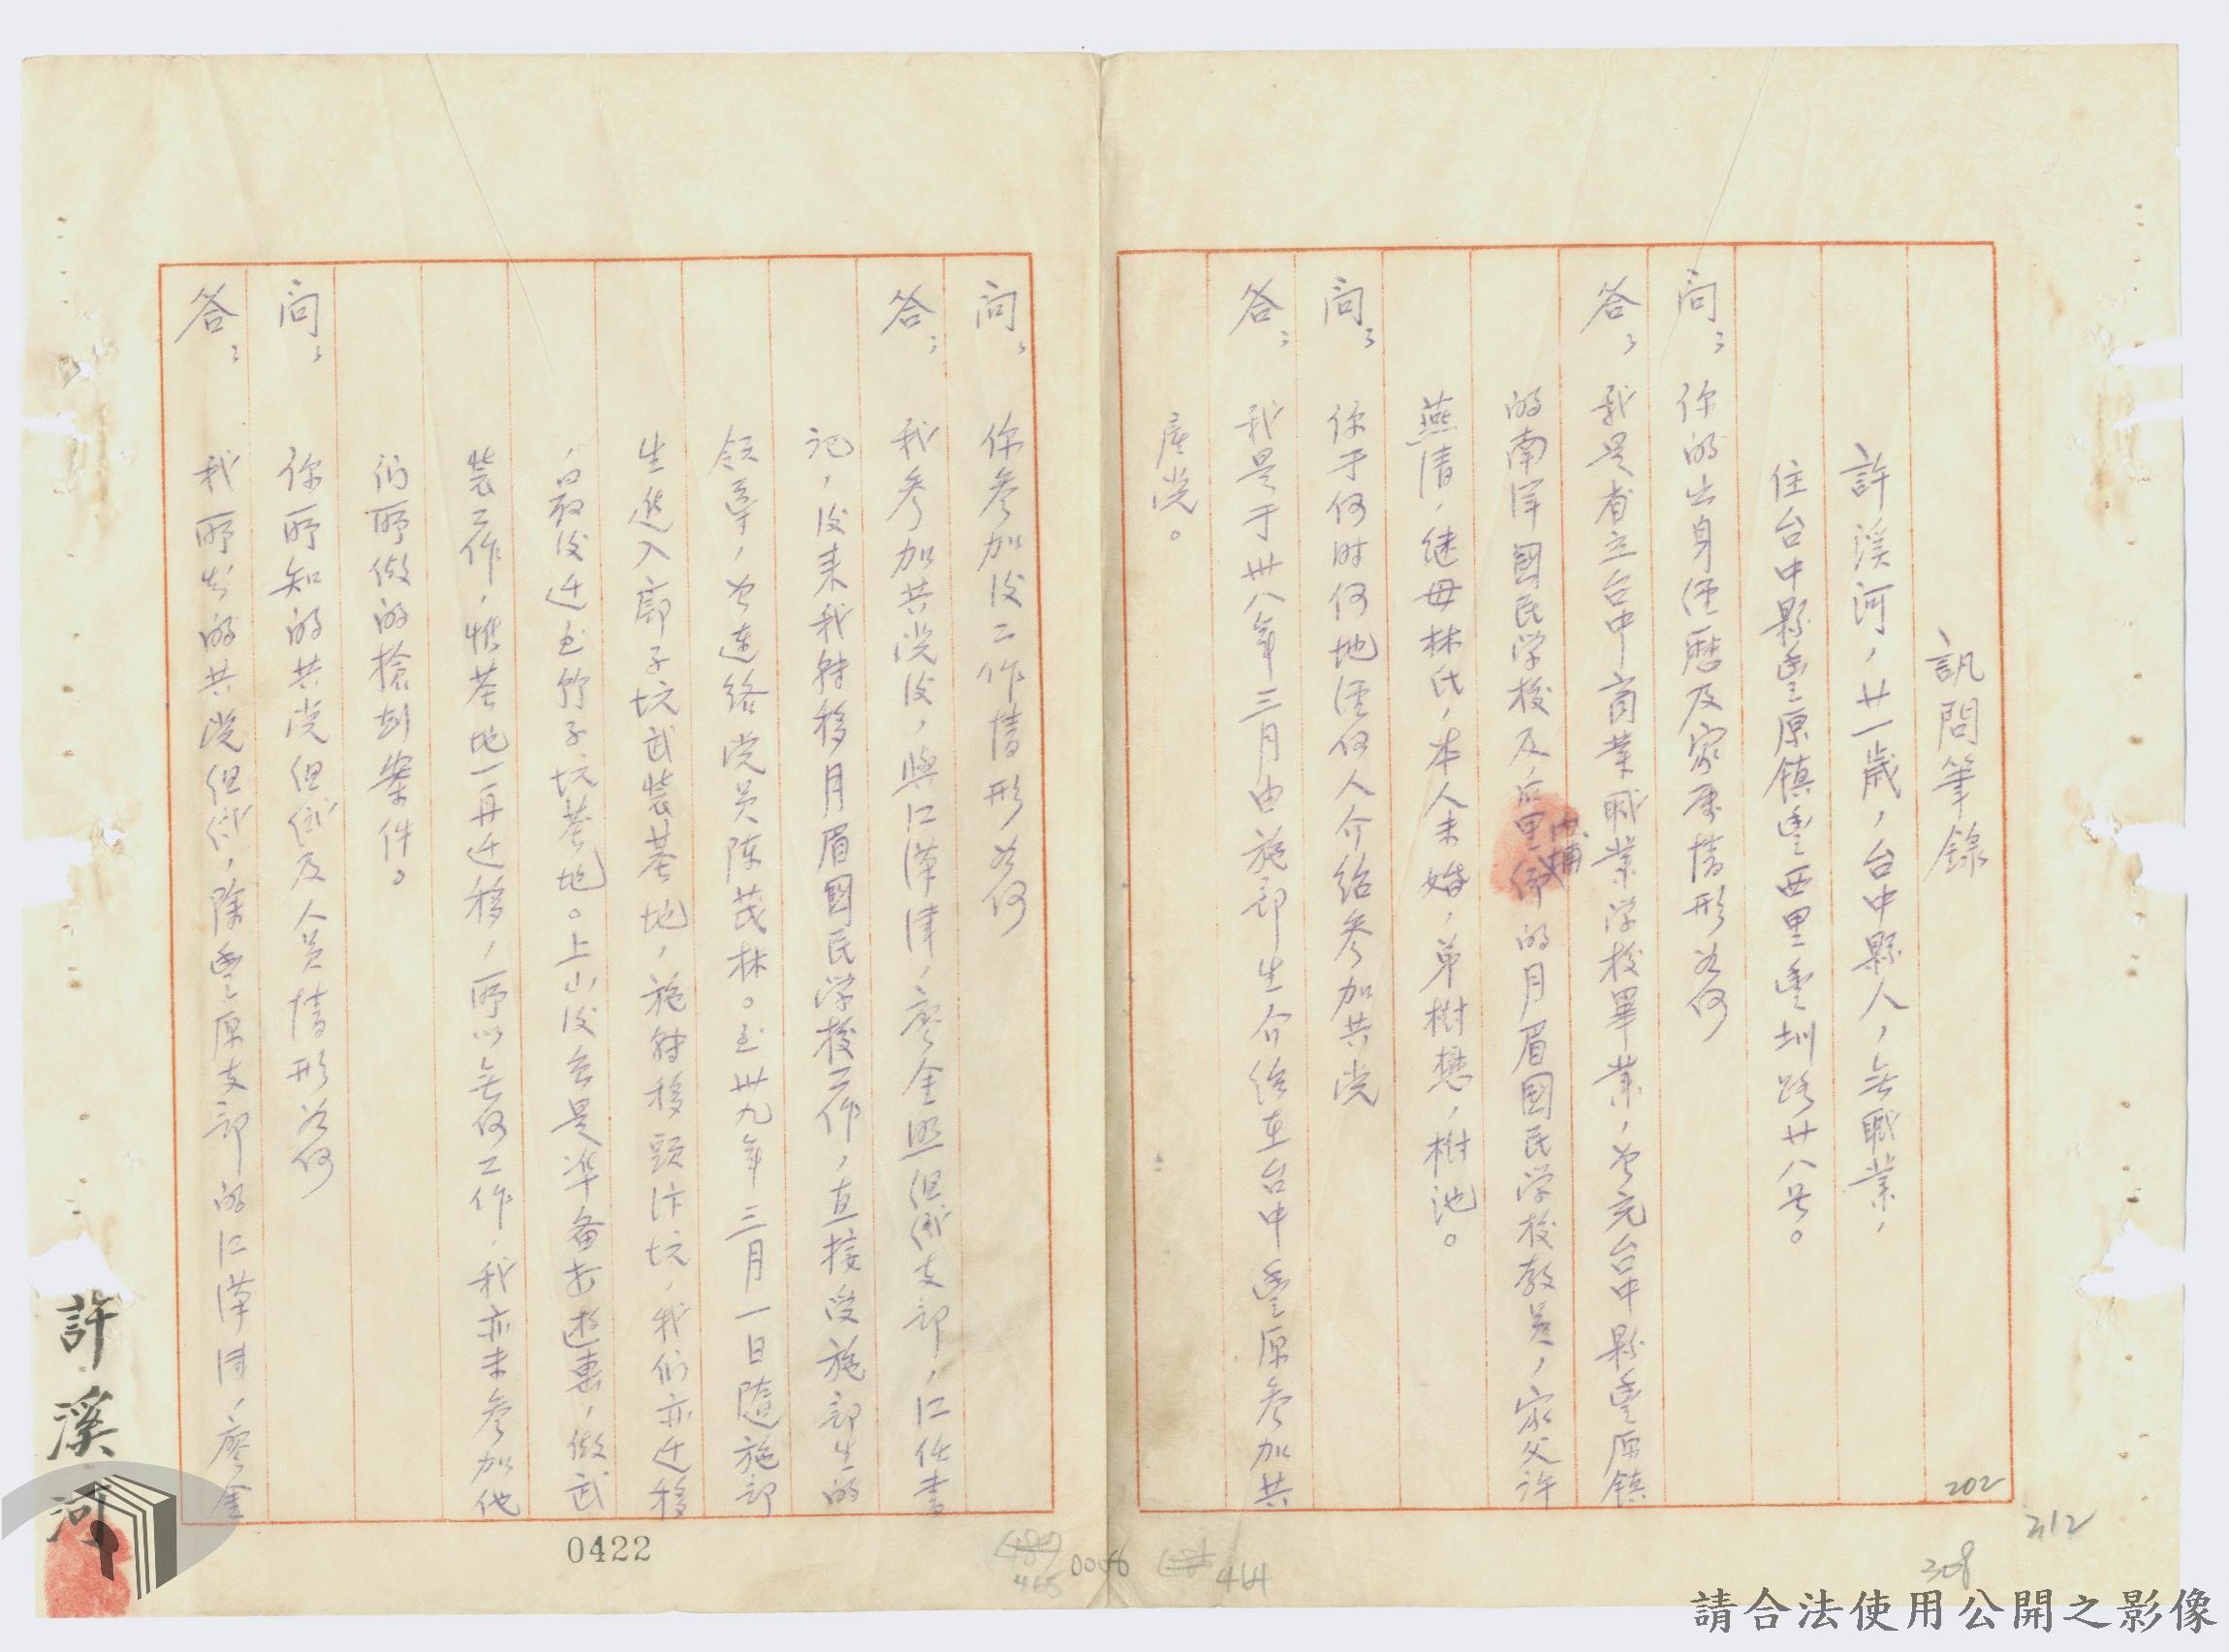 訊問筆錄
許溪河，廿一歲，台中縣人，無職業，
住台中縣豐原鎮豐西里豐圳路廿八号。
問：你的出身经歷及家屬情形为何
答：我是省立台中商業職業学校畢業，曾充台中縣豐原鎮
的南陽國民学校及后里鄉的月眉國民学校教員，家父许
燕清，继母林氏，本人未婚，弟樹懋，樹池。
問：你于何时何地经何人介绍参加共党
答：我是于卅八年三月由施部生介绍在台中豐原参加共
產党。
問：你参加後工作情形为何
答：我参加共党後，與江漢津，廖金照组织支部，江任書
记，後来我转移月眉國民学校工作，直接受施部生的
领導，曾連络党员陈茂林。至卅九年三月一日隨施部
生進入廍子坑武裝基地，施转移頭汴坑，我们亦迁移
，最後迁至竹子坑基地。上山後無是準备打游擊，做武
裝工作，惟基地一再迁移，所以無何工作，我亦未参加他
们所做的搶劫案件。
問：你所知的共党组织及人员情形为何
答：我所知的共党组织，除豐原支部的江漢津，廖金
許溪河
0422
0006
464
202
212
308
請合法使用公開之影像